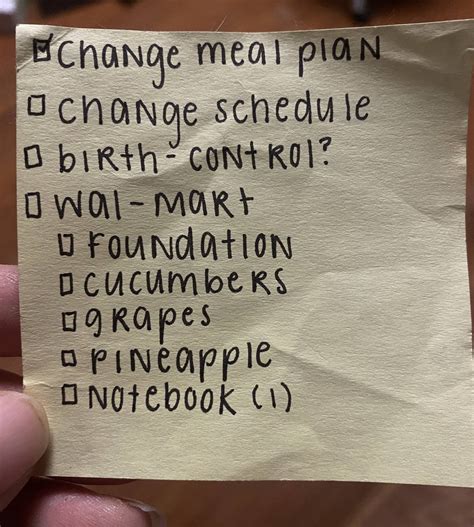 ☑ Change meal plan
☐ Change schedule
☐ birth-control?
☐ wal-mart
☐ foundation
☐ cucumbers
☐ grapes
☐ pineapple
☐ notebook (1)